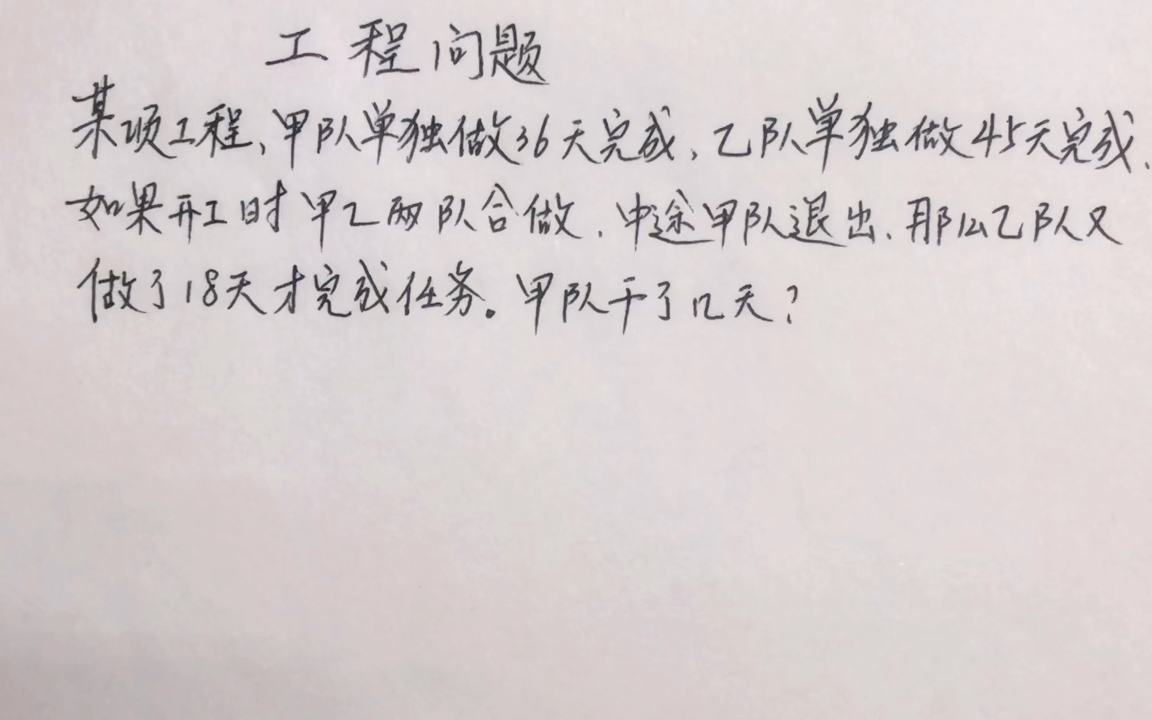 工程问题
某项工程,甲队单独做36天完成,乙队单独做45天完成.
如果开工时甲乙两队合做,中途甲队退出,那么乙队又
做了18天才完成任务。甲队干了几天?